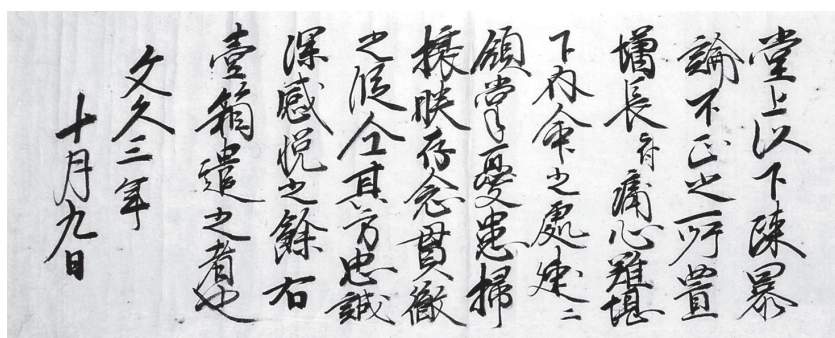 堂上以下疎暴
論不正之所置
増長付痛心難堪
下内命之處速ニ
領掌憂患掃
攘朕存念貫徹
之段全其方忠誠
深感悦之餘右
壹箱遣之者也
文久三年
十月九日